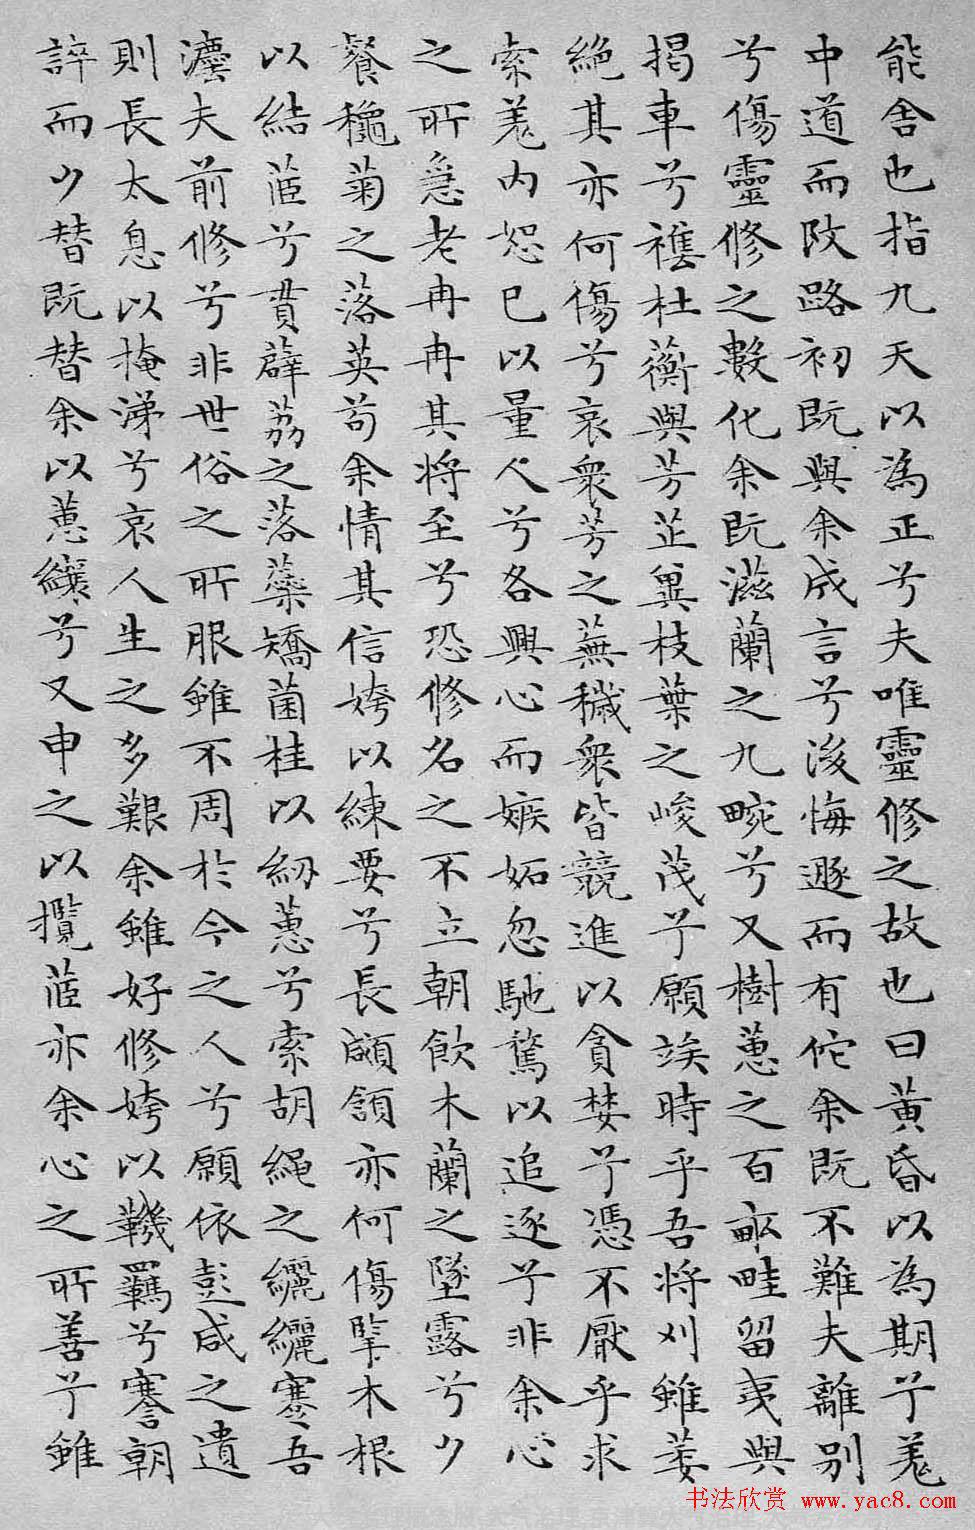 能舍也指九天以為正兮夫唯靈修之故也曰黄昏以為期兮羌
中道而改路初既與余成言兮後悔遯而有佗余既不難夫離別
兮傷靈修之數化余既滋蘭之九畹兮又樹蕙之百畝畦留夷與
揭車兮襍杜蘅與芳芷冀枝葉之峻茂兮願竢時乎吾将刈雖萎
絶其亦何傷兮哀衆芳之蕪穢衆皆競進以貪婪兮憑不厭乎求
索羌内恕己以量人兮各興心而嫉妬忽馳騖以追逐兮非余心
之所急老冉冉其将至兮恐修名之不立朝飲木蘭之墜露兮夕
餐秋菊之落英苟余情其信姱以練要兮長顑頷亦何傷擥木根
以結茝兮貫薜荔之落蘂矯菌桂以紉蕙兮索胡繩之纚纚謇吾
灋夫前修兮非世俗之所服雖不周於今之人兮願依彭咸之遺
則長太息以掩涕兮哀人生之多艱余雖好修姱以鞿羈兮謇朝
誶而夕替既替余以蕙纕兮又申之以攬茝亦余心之所善兮雖
书法欣赏 www.yac8.com